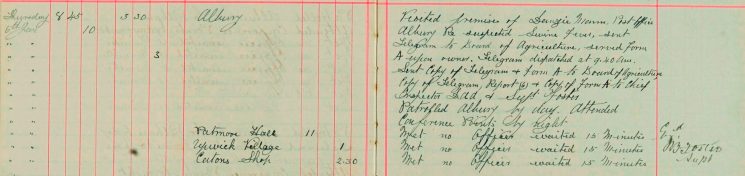 Thursday 8 45 5 30 Albury Visited premises of Mann. Post Office
6th 10 Albury Re suspected Swine Fever, sent
" " Telegram to Board of Agriculture, served form
" " 3 A upon owner. Telegram dispatched at 9.40 am.
" " Sent Copy of Telegram + Form A to Board of Agriculture
" " Copy of Telegram, Report + Copy of Form A to Chief
" " Inspector & Supt Foster
" " Patrolled Albury by day. Attended
" " Conference Points by Night
" " Patmore Hall 11 Met no officer waited 15 minutes
" " Upwick Village 1 Met no officer waited 15 minutes
" " Eatons Shop 2.30 Met no officer waited 15 minutes
Foster
Supt